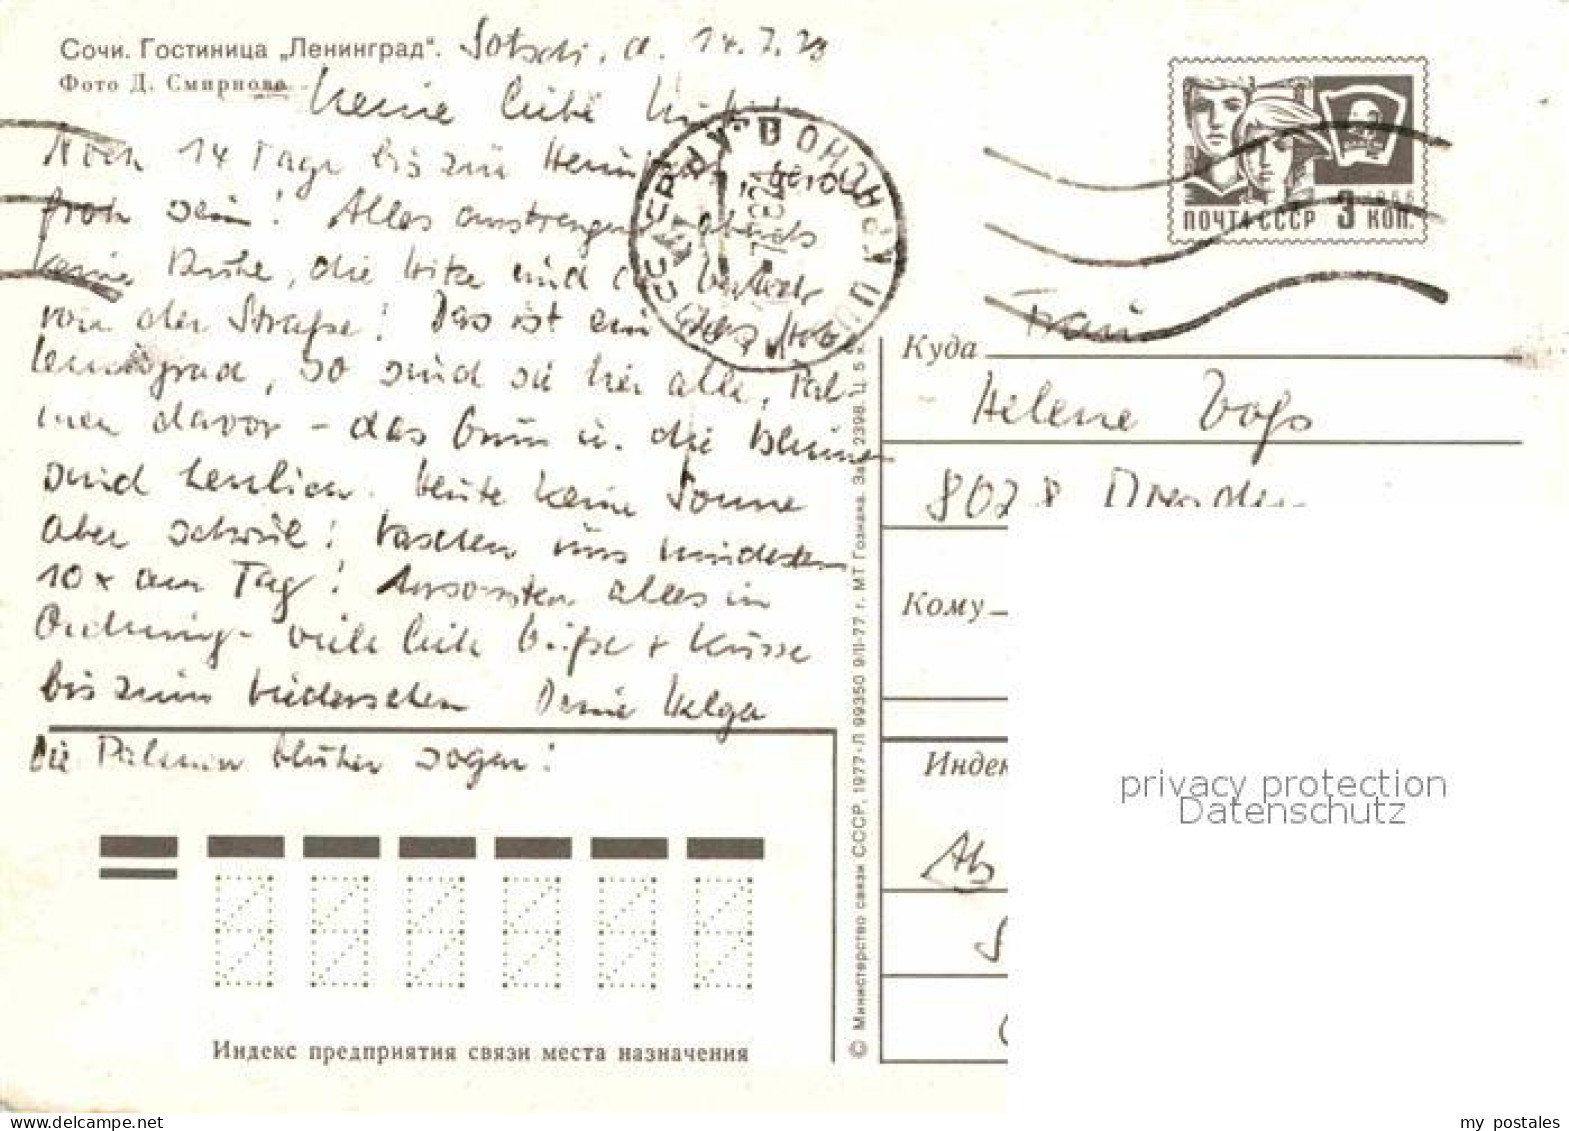 Сочи. Гостиница „Ленинград“.
Фото Д. Смирнова
Sotschi, d. 14.7.
Meine liebe
Noch 14 Tage bis zum
froh sein! Alles anstrengend, abends
keine Ruhe, die Hitze und
von der Straße! Das ist ein
Leningrad, so sind sie hier alle, Pal-
men davor - das Grün u. die Blumen
sind herrlich. Heute keine Sonne
aber schwül! Waschen uns mindestens
10x am Tag! Ansonsten alles in
Ordnung - viele liebe Grüße + Küsse
bis zum Wiedersehen Deine Helga
Die Palmen blühen sogar!
ПОЧТА СССР 3 КОП.
1966
Куда
Frau
Helene
Dresden
Кому
Индек
Индекс предприятия связи места назначения
© Министерство связи СССР, 1977 - Л 99350 9/II-77 г. МТ Гознака. Зак. 2398. Ц. 5 к.
privacy protection
Datenschutz
www.delcampe.net
my_postales